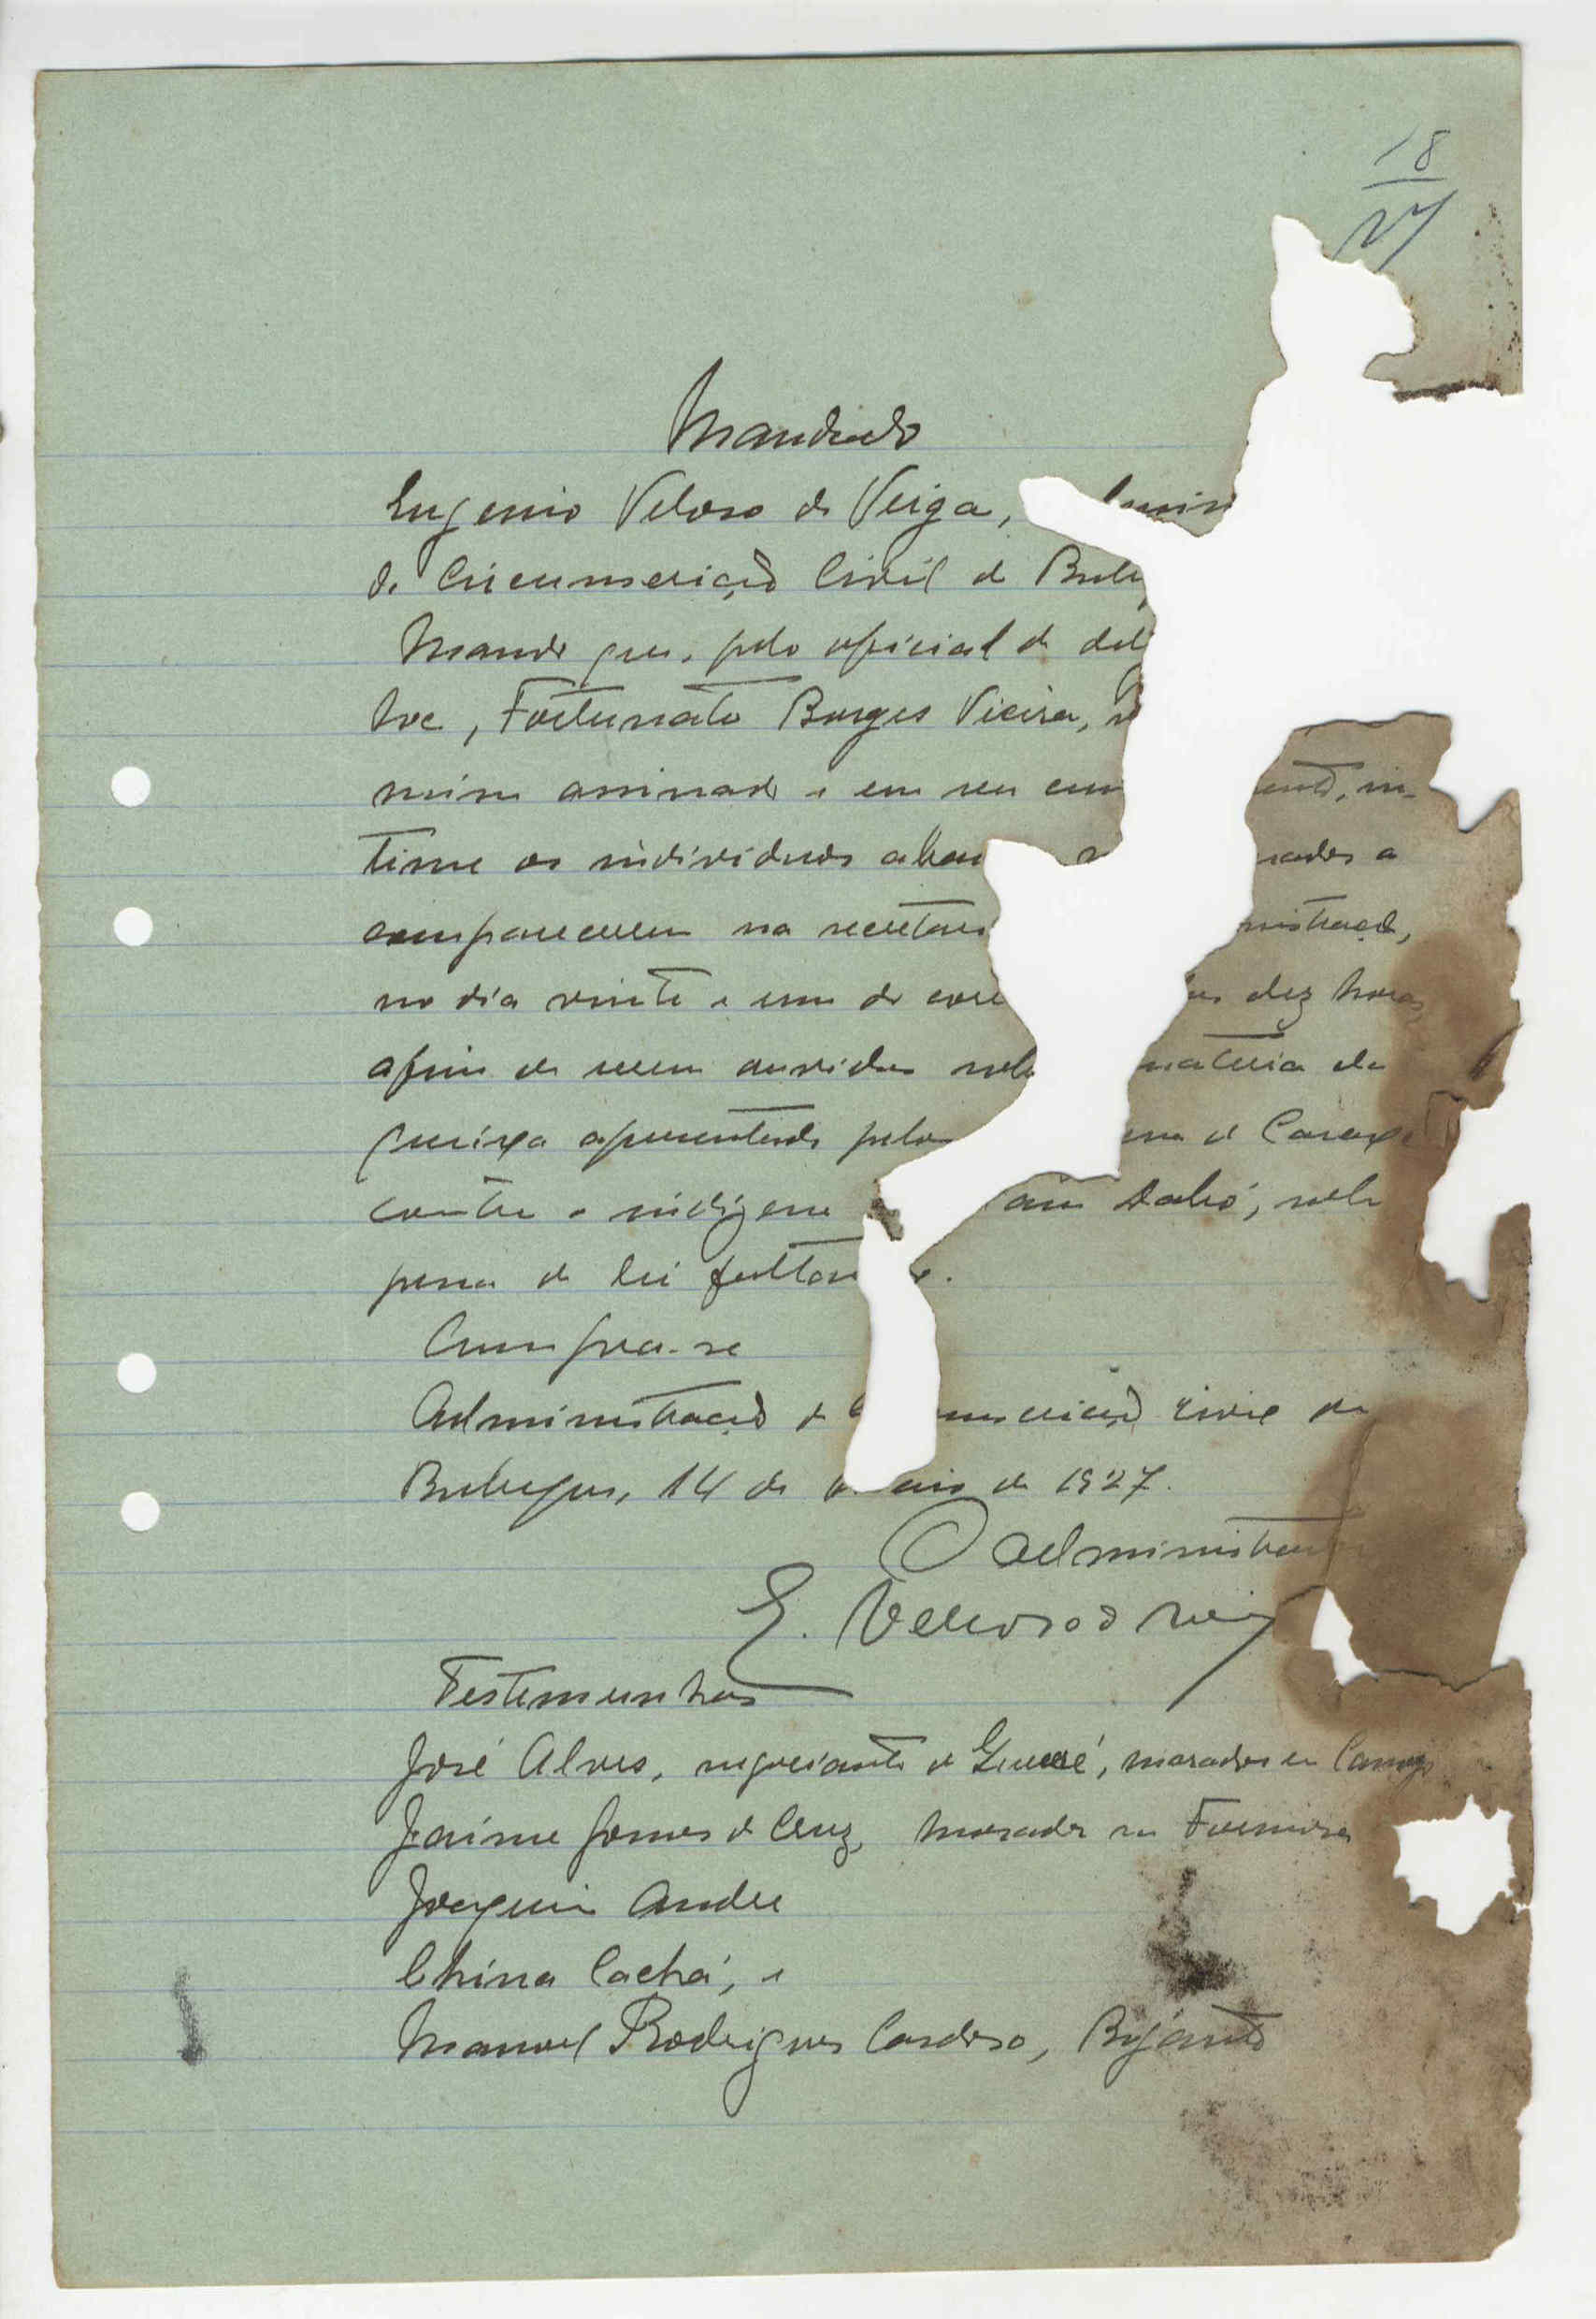 18
27
Mandado
Eugenio Veloso da Veiga,
da Circunscrição Civil de Bub
Mando que, pelo oficial de deli
Fortunato Borges Vieira,
mim assinado e em seu cum ento, in-
time os individuos abai nados a
comparecerem na secretari nistração,
no dia vinte e um do corr dez horas
afim de serem ouvidos sob materia da
queixa apresentada pelo
contra o indigena Dabó, sob
pena da lei faltan
Cumpra-se
Administração da C nscrição Civil de
Bubaque, 14 de Maio de 1927.
O administrador
E. Velloso da Veiga
Testemunhas
José Alves, negociante de morador em
Jaime Gomes da Cruz, morador em Formosa
Joaquim André
China Cachá, e
Manoel Rodrigues Cardoso,